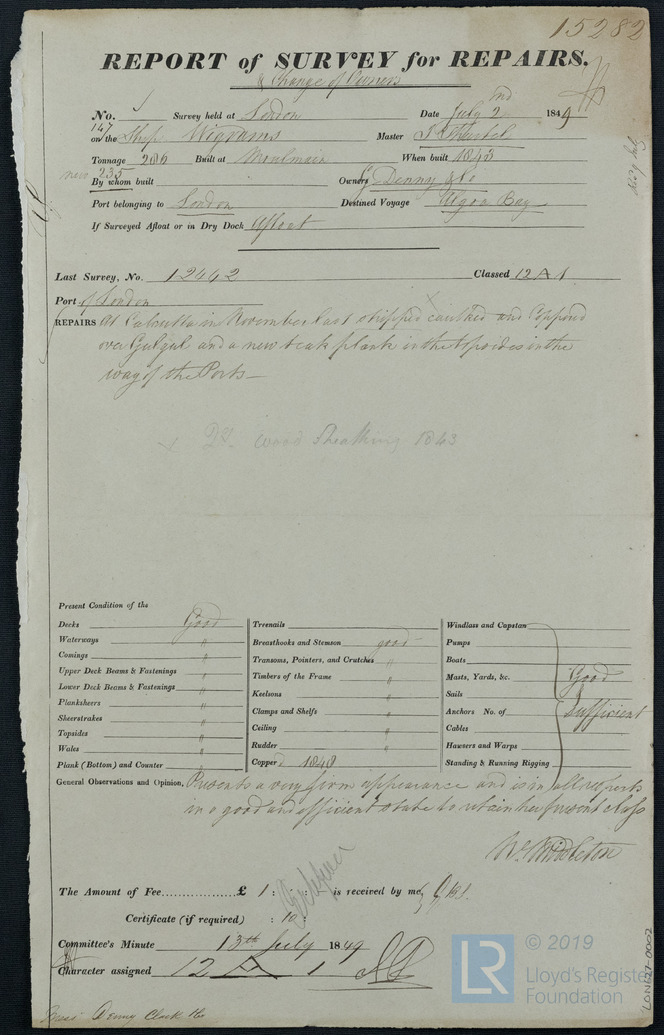 15282
REPORT of SURVEY for REPAIRS.
& Change of Owners
No. 147 Survey held at London Date July 2nd 1849
on the Ship Wigrams Master
Tonnage 206 Built at Moulmain When built 1843
new 235
By whom built Owners Denny & Co
Port belonging to London Destined Voyage Algoa Bay
If Surveyed Afloat or in Dry Dock Afloat
Last Survey, No. 12442 Classed 12 A 1
Port of London
REPAIRS At Calcutta in November last stripped caulked and Coppered
over Gulgul and a new teak plank in the Topsides in the
way of the Ports
wood Sheathing 1843
Present Condition of the
Decks Good
Waterways "
Comings "
Upper Deck Beams & Fastenings "
Lower Deck Beams & Fastenings "
Planksheers "
Sheerstrakes "
Topsides "
Wales "
Plank (Bottom) and Counter "
Treenails
Breasthooks and Stemson good
Transoms, Pointers, and Crutches "
Timbers of the Frame "
Keelsons "
Clamps and Shelfs "
Ceiling "
Rudder "
Copperd 1848
Windlass and Capstan
Pumps
Boats
Masts, Yards, &c. Good
Sails
Anchors No. of Sufficient
Cables
Hawsers and Warps
Standing & Running Rigging
General Observations and Opinion, Presents a very firm appearance and is in all respects
in a good and efficient state to retain her present class
Wm Middleton
The Amount of Fee............... £ 1 : : is received by me,
Certificate (if required) : 10 :
Committee's Minute 13th July 1849
Character assigned 12 A 1
Denny Clark & Co
LR © 2019
Lloyd's Register
Foundation
LON127-0002